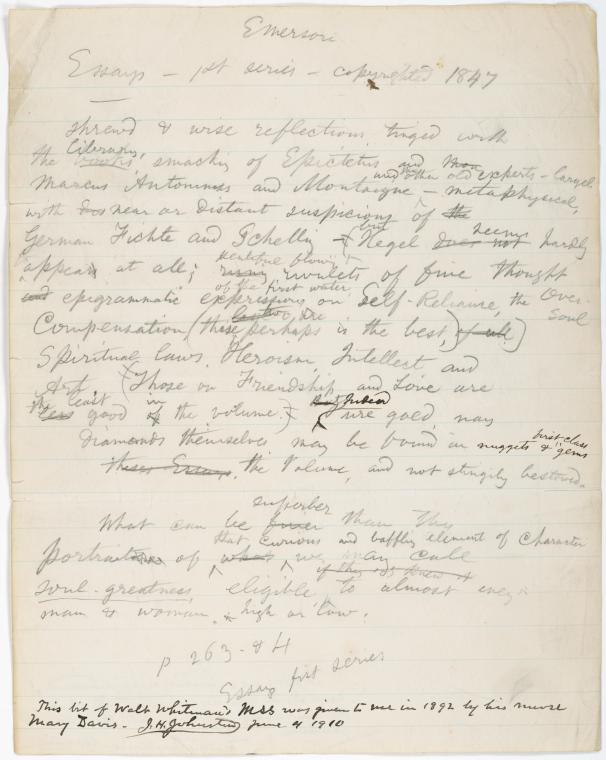 Emerson
Essays – 1st series – copyrighted 1847
shrewd & wise reflections, tinged with
the library, smacking of Epictetus and
Marcus Antoninus and Montaigne and other old experts – largely metaphysical,
with near or distant suspicions of the
German Fichte and Schelling – but Hegel does not seems hardly
appears at all; plentiful flowing rivulets of fine thought
and epigrammatic expressions of the first water on Self-Reliance, the Over-Soul
Compensation, (these last two are perhaps is the best,) of all
Spiritual Laws, Heroism, Intellect and
Art. (Those on Friendship and Love are
the least less good in the volume.) But Indeed pure gold, nay
Diamonds themselves may be found in nuggets & first class gems
these Essays, the Volume, and not stingily bestowed.
What can be finer superber than this
portrait of what that curious and baffling element of character we may call
if they
soul-greatness, eligible to almost every
man & woman, high or low.
p 263-84
Essay first series
This bit of Walt Whitman's MSS was given to me in 1892 by his nurse
Mary Davis – J. H. Johnston June 4 1910